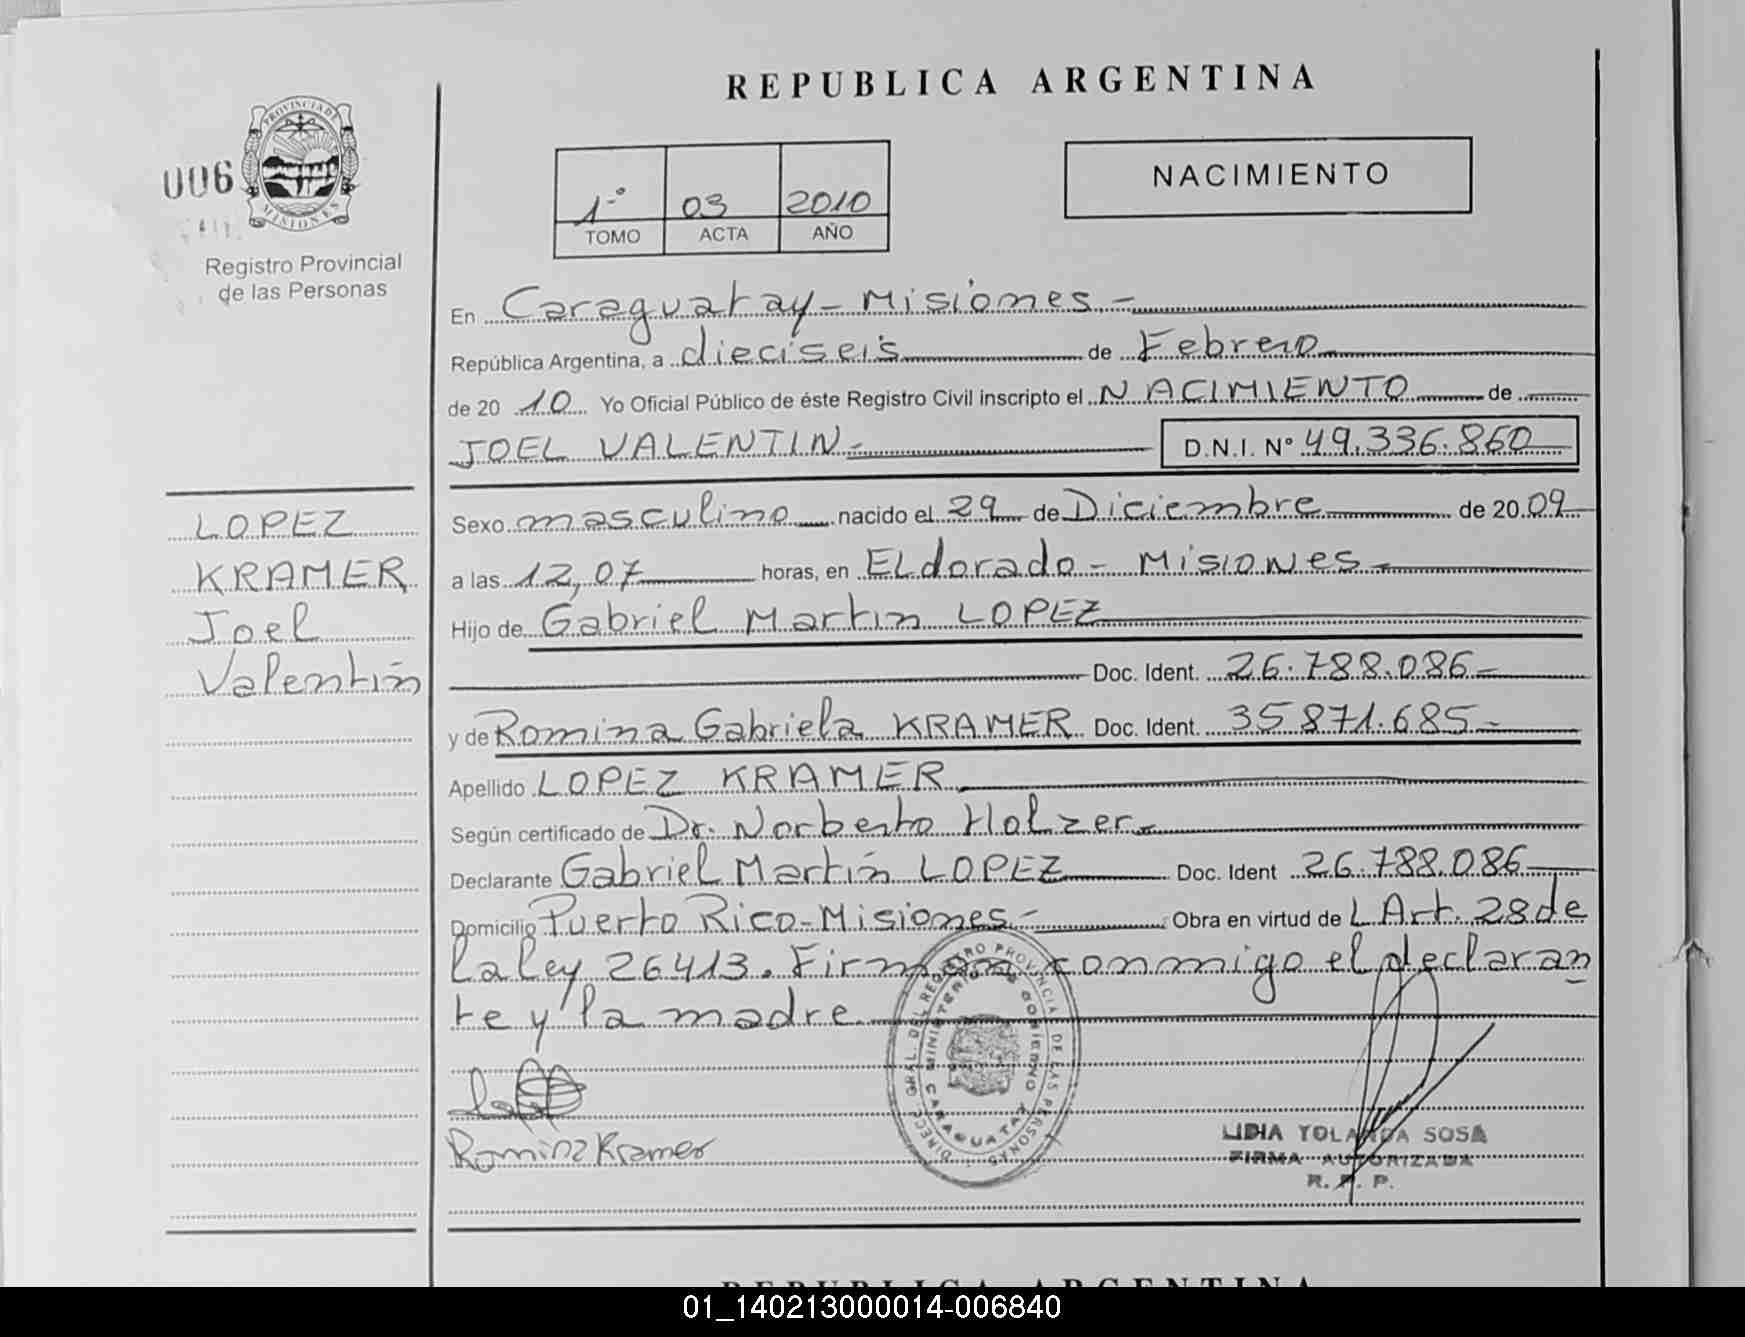 REPUBLICA ARGENTINA
006
PROVINCIA DE
MISIONES
Registro Provincial
de las Personas
1º 03 2010
TOMO ACTA AÑO
NACIMIENTO
En Caraguatay - Misiones.-
República Argentina, a dieciseis de Febrero
de 20 10 Yo Oficial Público de éste Registro Civil inscripto el NACIMIENTO de
JOEL VALENTIN.- D.N.I. Nº 49.336.860
LOPEZ
KRAMER
Joel
Valentín
Sexo masculino nacido el 29 de Diciembre de 20 09
a las 12,07 horas, en ELdorado - Misiones -
Hijo de Gabriel Martin LOPEZ
Doc. Ident. 26.788.086-
y de Romina Gabriela KRAMER Doc. Ident. 35 871.685-
Apellido LOPEZ KRAMER
Según certificado de Dr. Norberto Holzer-
Declarante Gabriel Martín LOPEZ Doc. Ident 26.788.086
Domicilio Puerto Rico-Misiones.- Obra en virtud de L Art. 28 de
la Ley 26413. Firman conmigo el declaran
te y la madre
DIRECC. GRAL. DEL REGISTRO PROVINCIAL DE LAS PERSONAS
MINISTERIO DE GOBIERNO
CARAGUATAY
Romina Kramer
LIDIA YOLANDA SOSA
FIRMA AUTORIZADA
R. P. P.
REPUBLICA ARGENTINA
01_140213000014-006840